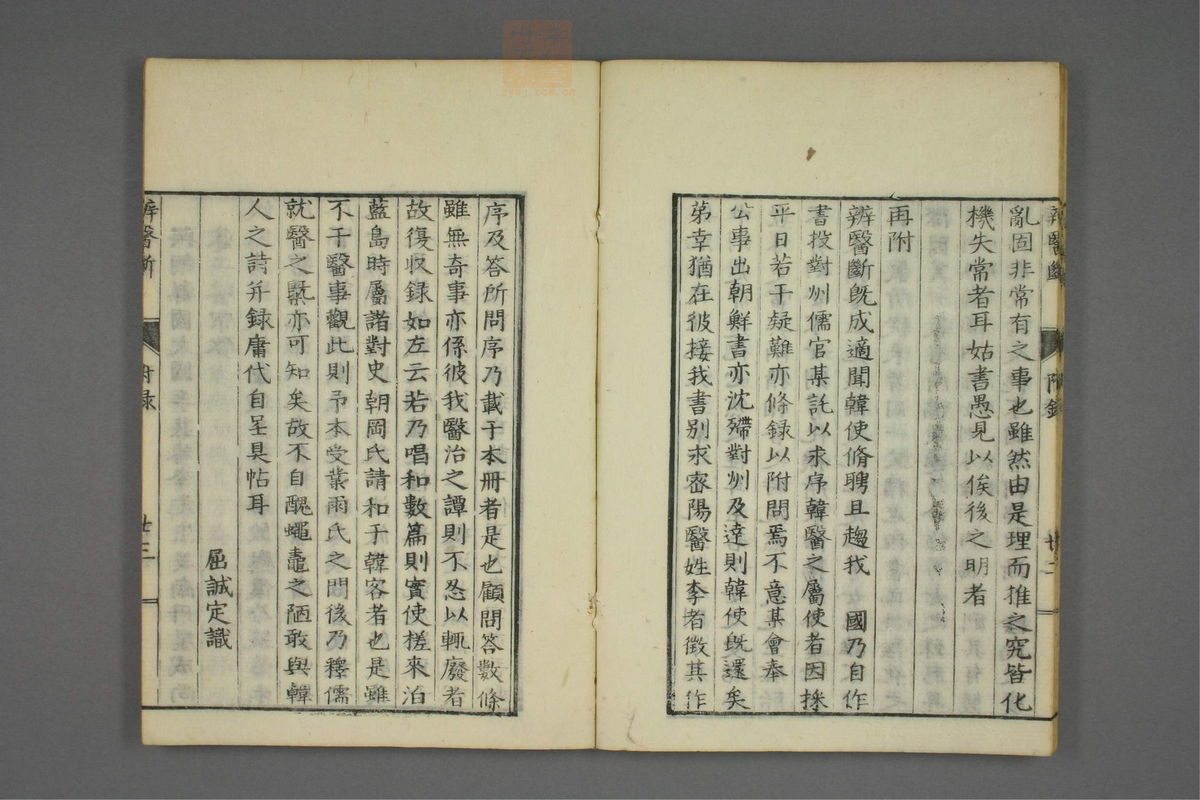 辨醫斷
附錄
廿二
亂固非常有之事也雖然由是理而推之究皆化
機失常者耳姑書愚見以俟後之明者
再附
辨醫斷旣成適聞韓使脩聘且趨我 國乃自作
書投對州儒官某託以求序韓醫之屬使者因採
平日若干疑難亦條錄以附問焉不意某會奉
公事出朝鮮書亦沈殢對州及達則韓使旣還矣
苐幸猶在彼接我書別求密陽醫姓李者徵其作
序及答所問序乃載于本冊者是也顧問答數條
雖無奇事亦係彼我醫治之譚則不忍以輒廢者
故復収錄如左云若乃唱和數篇則實使槎來泊
藍島時屬諸對史朝岡氏請和于韓客者也是雖
不于醫事觀此則予本受業雨氏之門後乃釋儒
就醫之槩亦可知矣故不自醜蠅鼃之陋敢與韓
人之詩并錄庸代自呈具帖耳
屈誠定識
辨醫斷
附錄
廿三